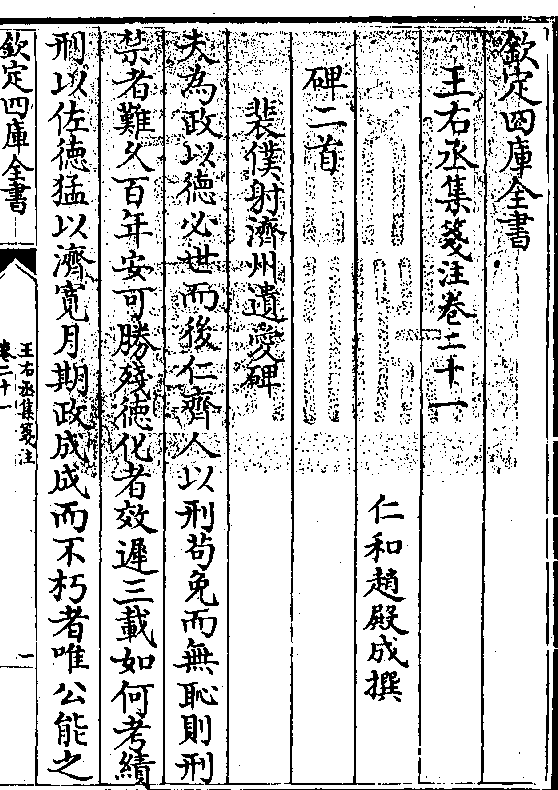 欽定四庫全書
王右丞集箋注卷二十一
仁和趙殿成撰
碑二首
裴僕射濟州遺愛碑
夫為政以德必世而後仁齊人以刑苟免而無恥則刑
禁者難久百年安可勝殘德化者效遲三載如何考績
刑以佐德猛以濟寬月期政成成而不朽者唯公能之
欽定四庫全書
王右丞集箋注
卷二十一
一